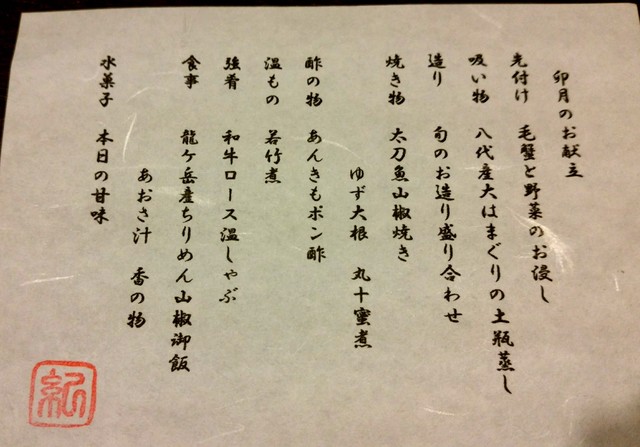 卯月のお献立
先付け 毛蟹と野菜のお浸し
吸い物 八代産大はまぐりの土瓶蒸し
造り 旬のお造り盛り合わせ
焼き物 太刀魚山椒焼き
ゆず大根 丸十蜜煮
酢の物 あんきもポン酢
温もの 若竹煮
強肴 和牛ロース温しゃぶ
食事 龍ケ岳産ちりめん山椒御飯
あおさ汁 香の物
水菓子 本日の甘味